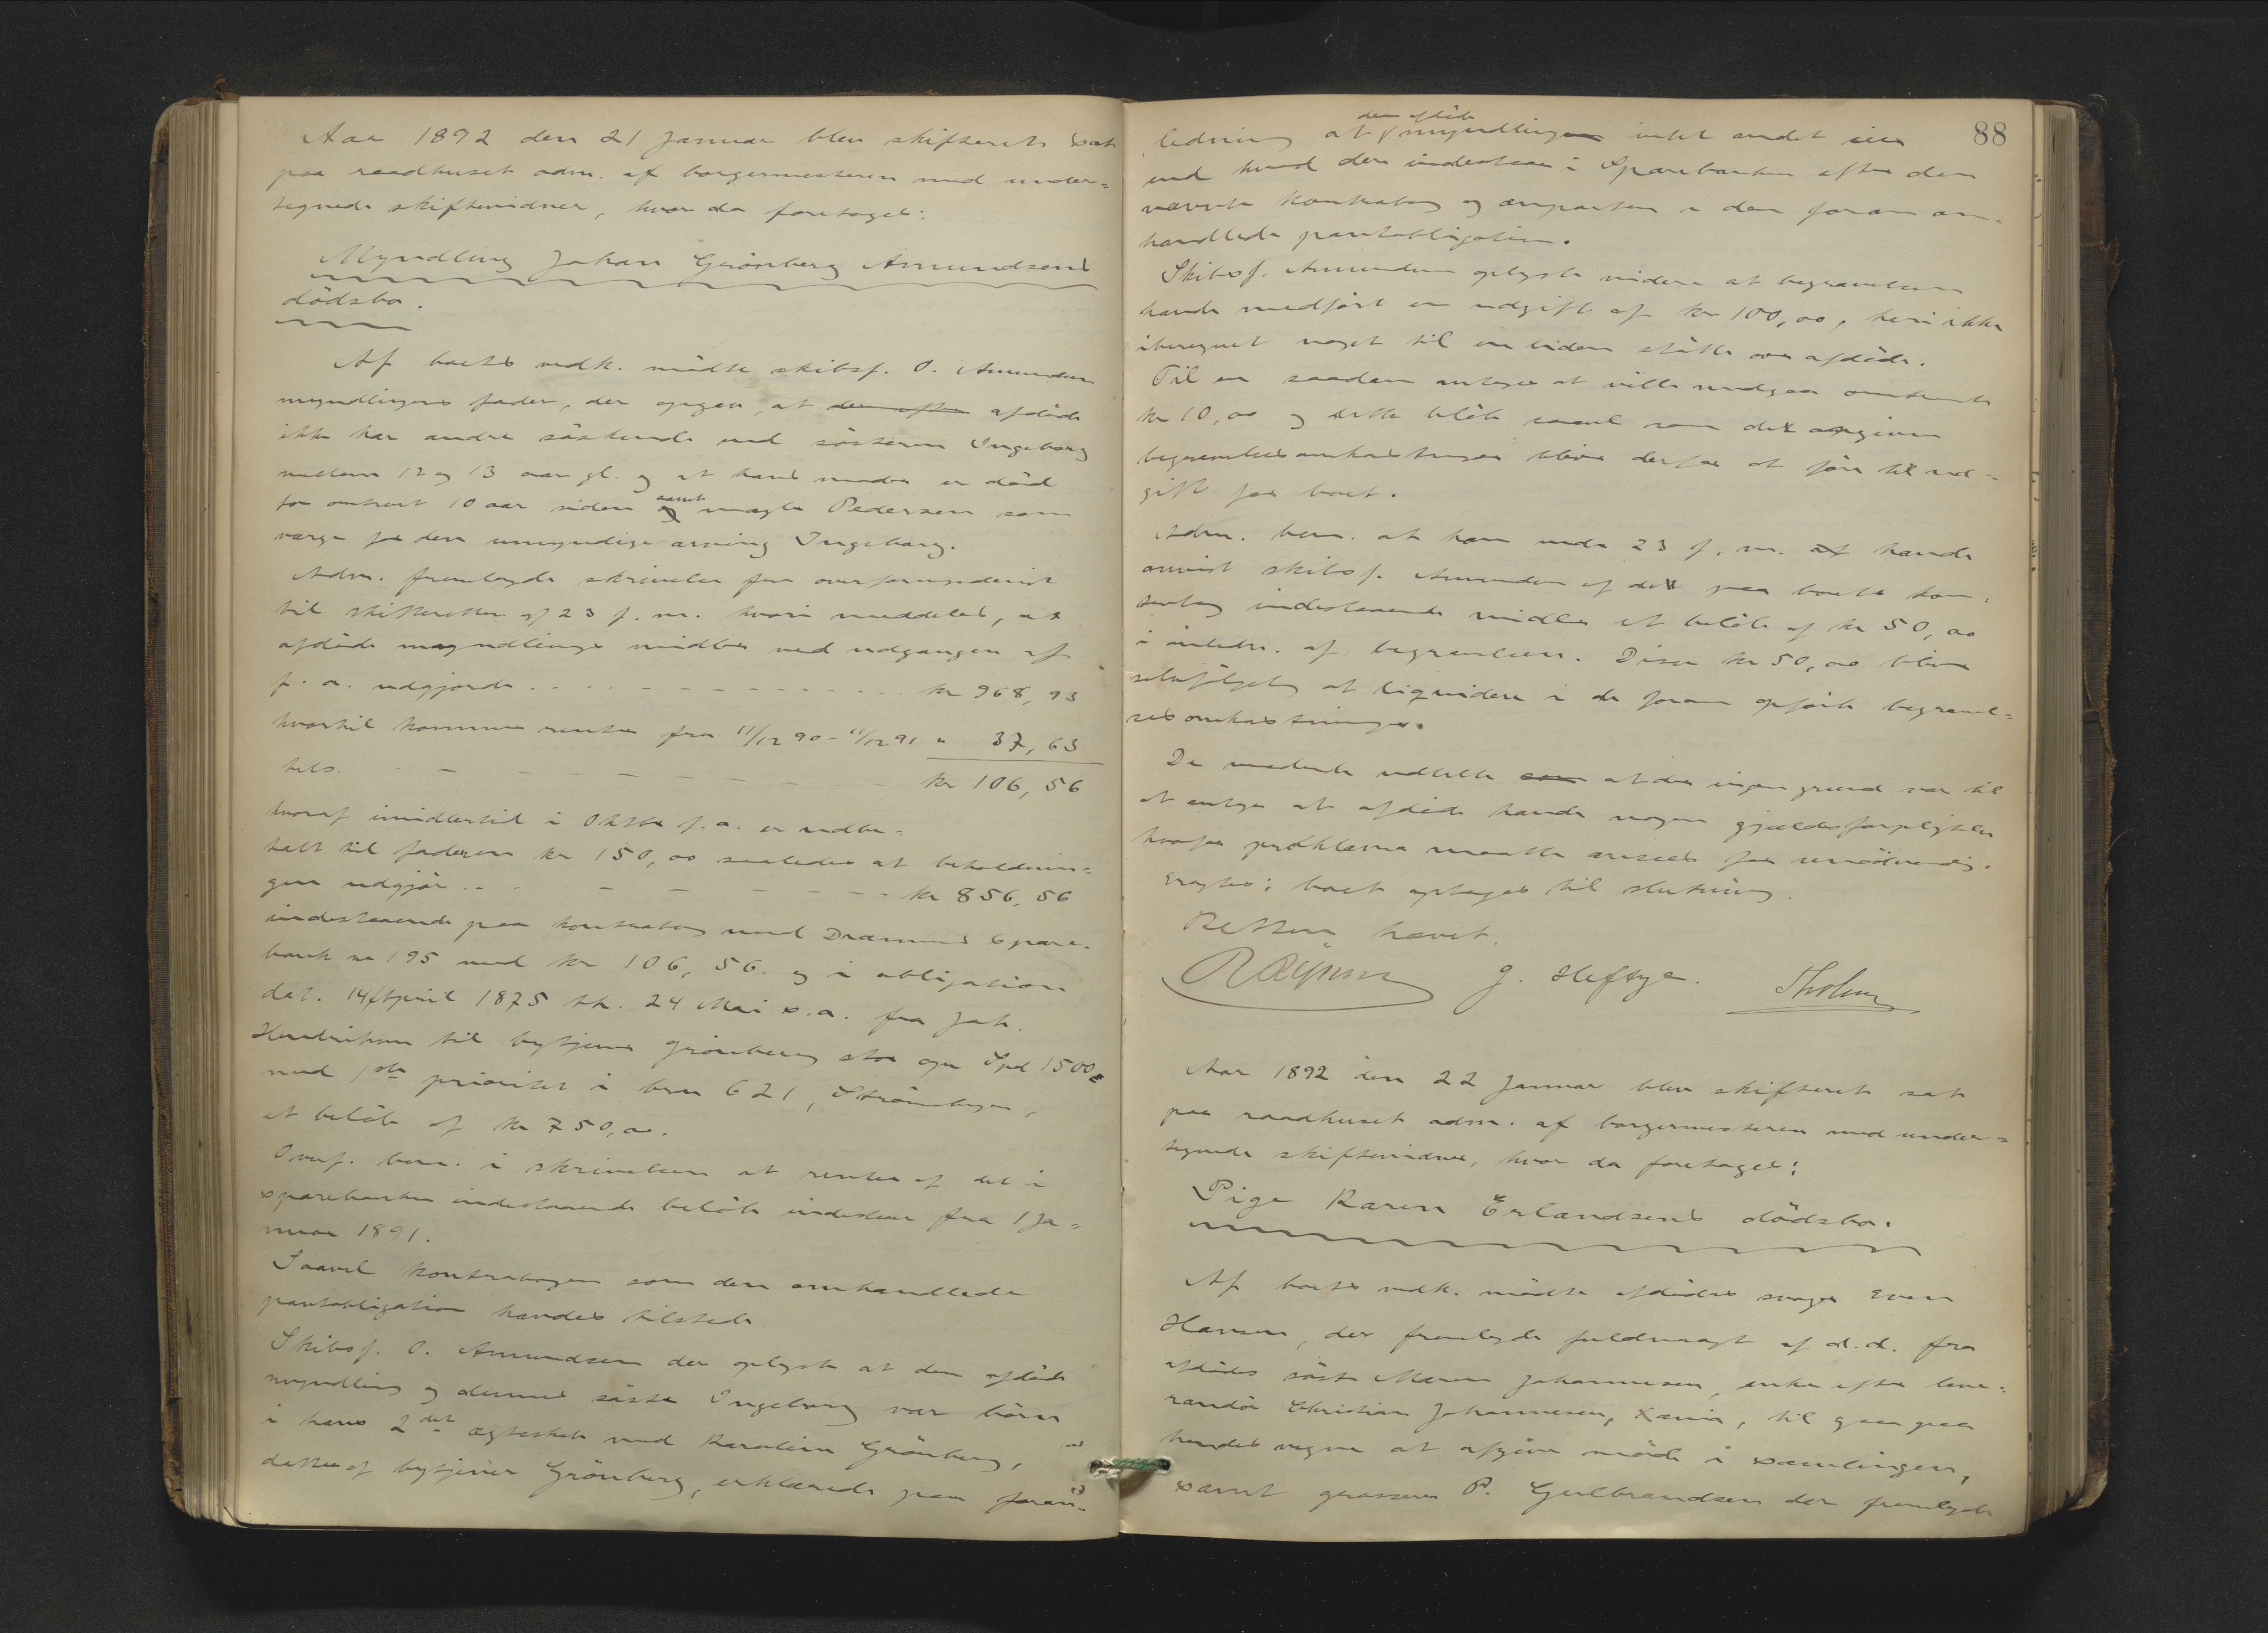 Aar 1892 den 21 Januar blev skifteret sat
paa raadhuset adm. af borgermesteren med under=
tegnede skiftevidner, hvor da foretoges:
Myndling Johan Grönberg Amundsens
dödsbo.
Af boets vedk. mödte skibsf. O. Amundsen
myndlingens fader, der opgav, at den efter afdöde
ikke har andre söskende end sösteren Ingeborg
mellem 12 og 13 aar gl. og at hans moder er död
for omtrent 10 aar siden samt mægler Pedersen som
værge for den umyndige arving Ingeborg.
Adm. fremlagde skrivelse fra overformynderiet
til skifteretten af 23 f. m. hvori meddeles, at
afdöde myndlings midler ved udgangen af
f. a. udgjorde . . . . kr 968,93
hvortil kommer renter fra 11/12 90 - 11/12 91 " 37,63
tils. - - - - kr 106,56
hvoraf imidlertid i Oktbr f. a. er udbe=
talt til faderen kr 150,00 saaledes at beholdnin=
gen udgjör . . - - - - kr 856,56
indestaaende paa kontrabog med Drammens Spare=
bank no 195 med kr 106,56. og i obligation
dat. 14 April 1875 th. 24 Mai s.a. fra Joh.
Henriksen til bytjener Grönberg stor opr Spd 1500=
med 1ste prioritet i brno 621, Strömsögr,
et belöb af kr 750,00.
Overf. bem. i skrivelsen at renter af det i
sparebanken indestaaende belöb indestaar fra 1 Ja=
nuar 1891.
Saavel kontrabogen som den omhandlede
pantobligation havdes tilstede
Skibsf. O. Amundsen der oplyste at den afdöde
myndling og dennes söster Ingeborg var börn
i hans 2det ægteskab med Karoline Grönberg,
datter af bytjener Grönberg, erklærede paa foran=
88
ledning at den afdöde myndlingen intet andet eier
end hvad der indestaar i Sparebanken efter den
nævnte kontrabog og anparten i den foran om=
handlede pantobligation.
Skibsf. Amundsen oplyste videre at begravelsen
havde medfört en udgift af kr 100,00, heri ikke
iberegnet noget til en liden stötte over afdöde.
Til en saadan antages at ville medgaa omtrent
kr 10,00 og dette belöb saavel som det opgivne
begravelsesomkostninger bliver derfor at före til ud=
gift for boet.
Adm. bem. at han under 23 f. m. havde
anvist skibsf. Amundsen af det paa boets kon=
trabog indestaaende midler et belöb af kr 50,00
i anledn. af begravelsen. Disse kr 50,00 bliver
selvfölgelig at liquidere i de foran opförte begravel=
sesomkostninger.
De mödende udtalte at der ingen grund var til
at antage at afdöde havde nogen gjældsforpligtelser
hvorfor proklama maatte ansees for unödvendig.
Eragtes: boet optages til slutning.
Retten hævet.
J. Heftye. Tholm
Aar 1892 den 22 Januar blev skifteret sat
paa raadhuset adm. af borgermesteren med under=
tegnede skiftevidner, hvor da foretoges:
Pige Karen Erlandsens dödsbo.
Af boets vedk. mödte afdödes svoger Even
Hansen, der fremlagde fuldmagt af d.d. fra
afdödes söster Maren Johannesen, enke efter leve=
randör Christian Johannesen, Xania, til paa
hendes vegne at afgive möde i samlingen,
samt grosserer P. Gulbrandsen der fremlagde